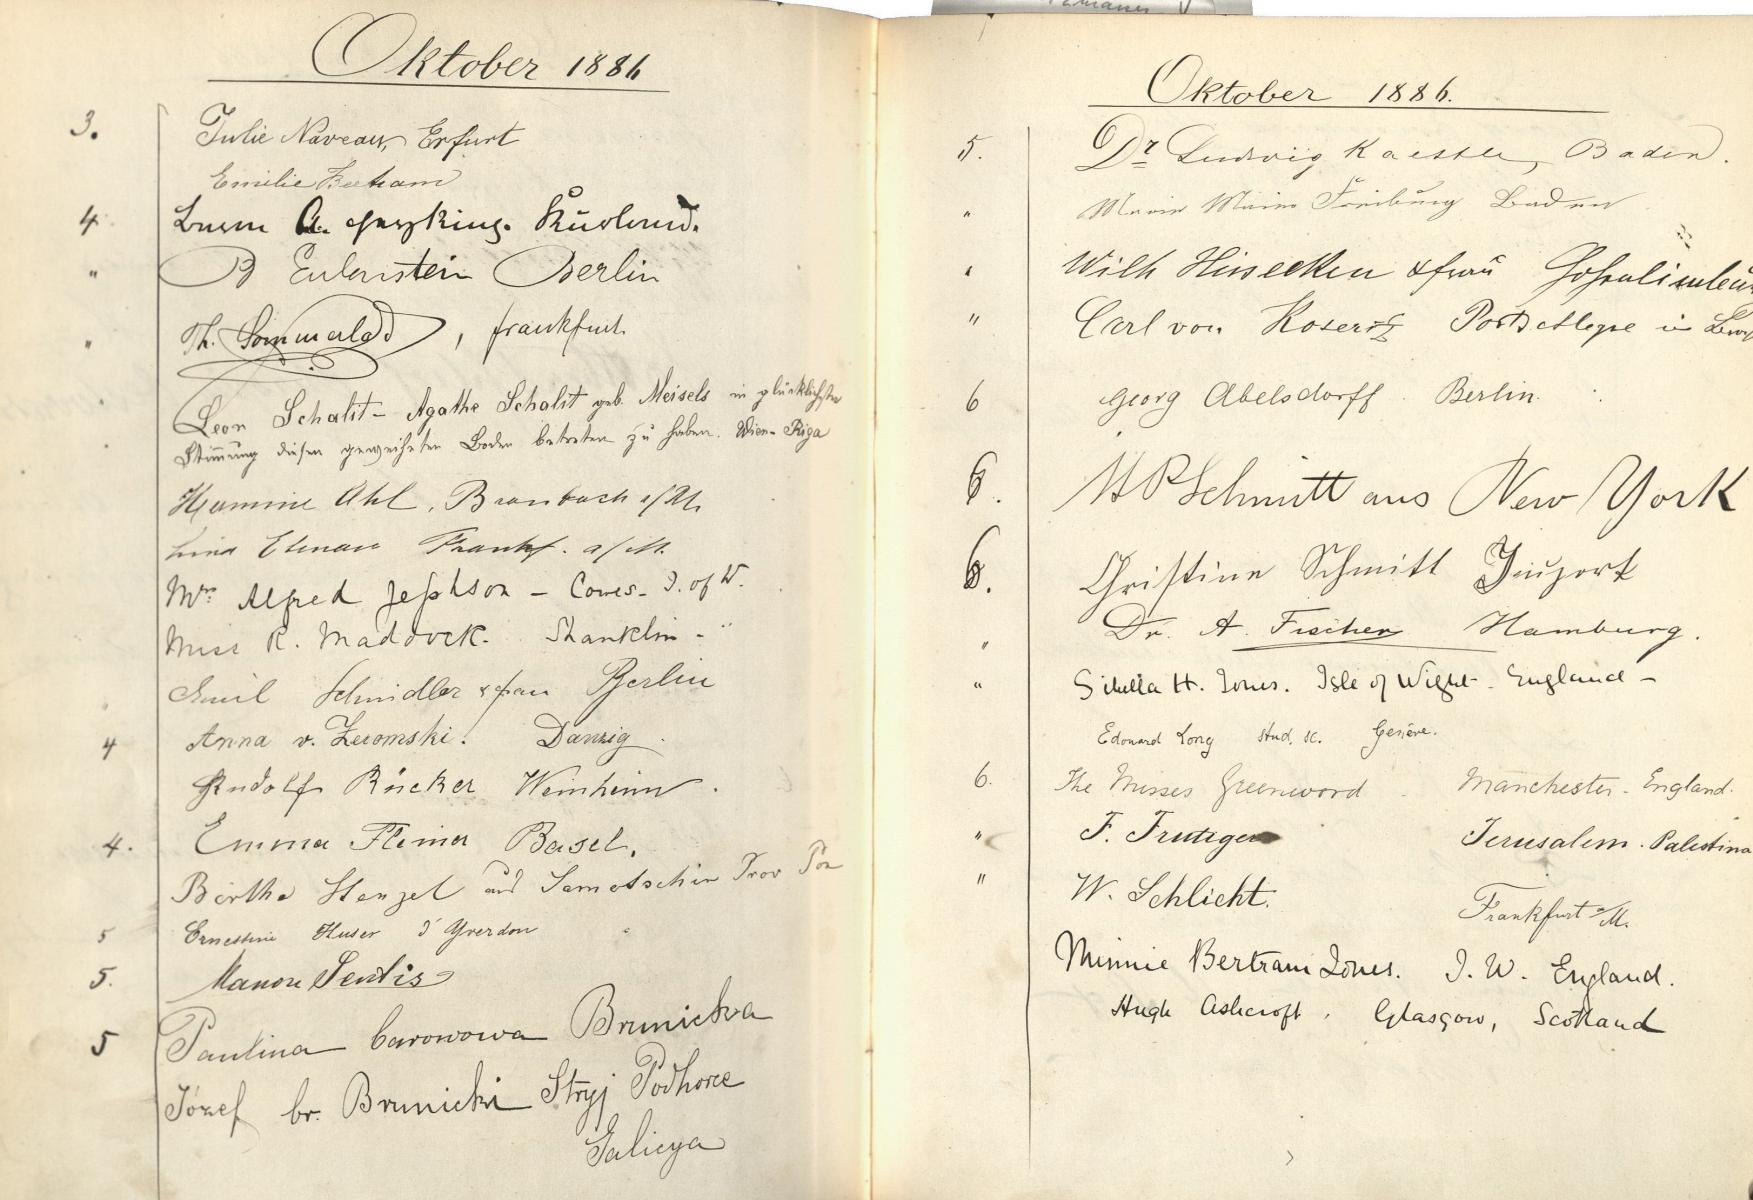 Oktober 1886
3. Julie Naveau, Erfurt
Emilie Bertram
4 A. Kurland.
" B Eulenstein Berlin
" Th. Sommerlad, Frankfurt.
Leon Schalit - Agathe Schalit geb. Meisels in glücklichster
Stimmung diesen geweihten Boden betreten zu haben. Wien - Riga
Ahl, Braubach a/Rh.
Lina Frankf. a/M.
Mrs Alfred Jephson - Cowes - I. of W.
Miss R. Maddock. Shanklin - "
Emil Schindler & frau Berlin
4 Anna v. Zeromski. Danzig.
Rudolf Rücker Weinheim.
4. Emma Basel.
Bertha Stenzel aus Samotschin Prov Pos
5 Ernestine Huser d'Yverdon
5. Manon Sentis
5 Paulina baronowa Brunicka
Józef br. Brunicki Stryj Podhorce
Galicya
Oktober 1886.
5. Dr Ludwig Baden.
" Marie Freiburg Baden
" Wilh & frau
" Carl von Koseritz Porto Alegre in
6 Georg Abelsdorff. Berlin.
6. Schmitt aus New York
6. Christine Schmitt
" Dr. A. Fischer Hamburg.
" Sibella H. Jones. Isle of Wight - England -
Edouard Long stud. sc. Genève.
6. The Misses Greenwood Manchester - England.
" F. Frutiger Jerusalem. Palestina
" W. Schlicht. Frankfurt a/M.
Minnie Bertram Jones. I. W. England.
Hugh Ashcroft, Glasgow, Scotland